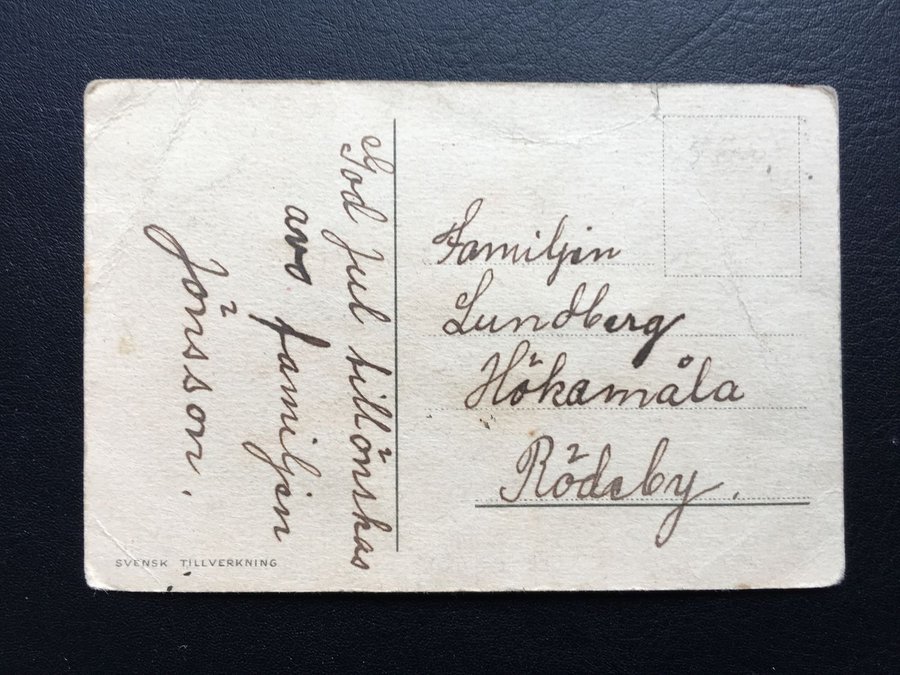 God Jul tillönskas
avo familjen
Jönsson.
Familjen
Lundberg
Hökamåla
Rödeby.
SVENSK TILLVERKNING